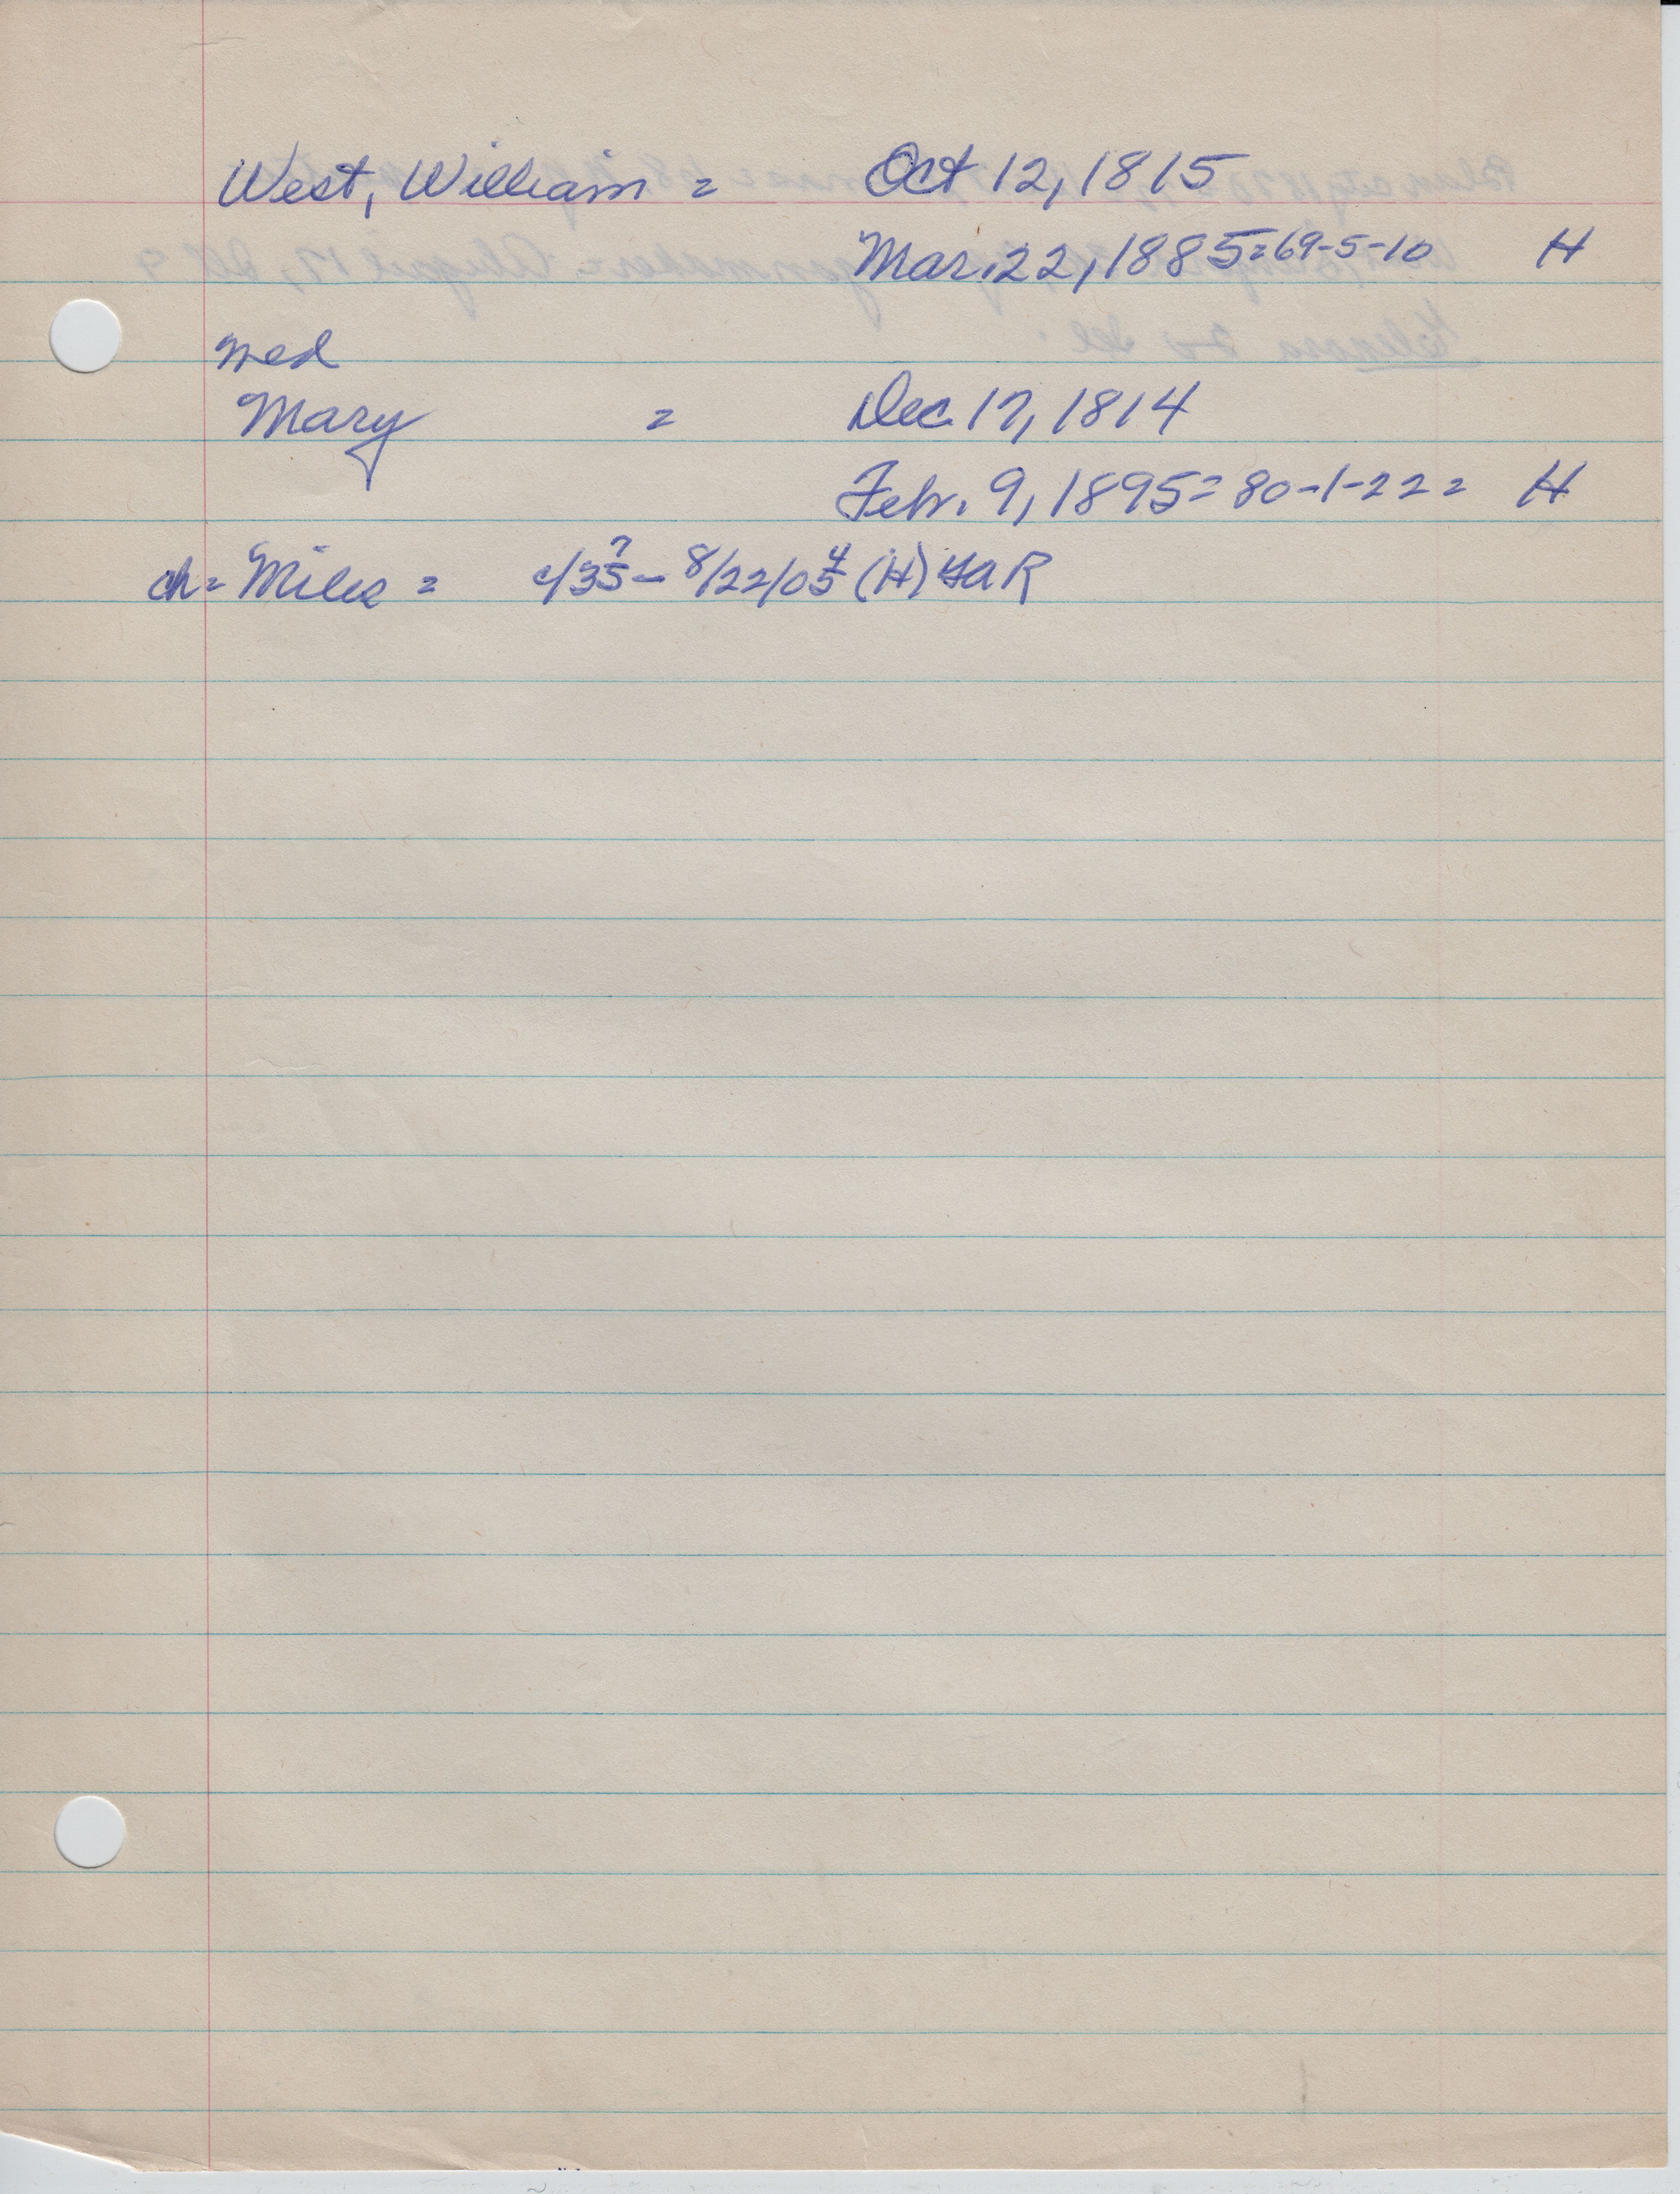 West, William = Oct 12, 1815
Mar. 22, 1885=69-5-10 H
med
Mary = Dec. 17, 1814
Feb. 9, 1895=80-1-22= H
ch= Miles = c/35 7 - 8/22/05 4 (H) GAR